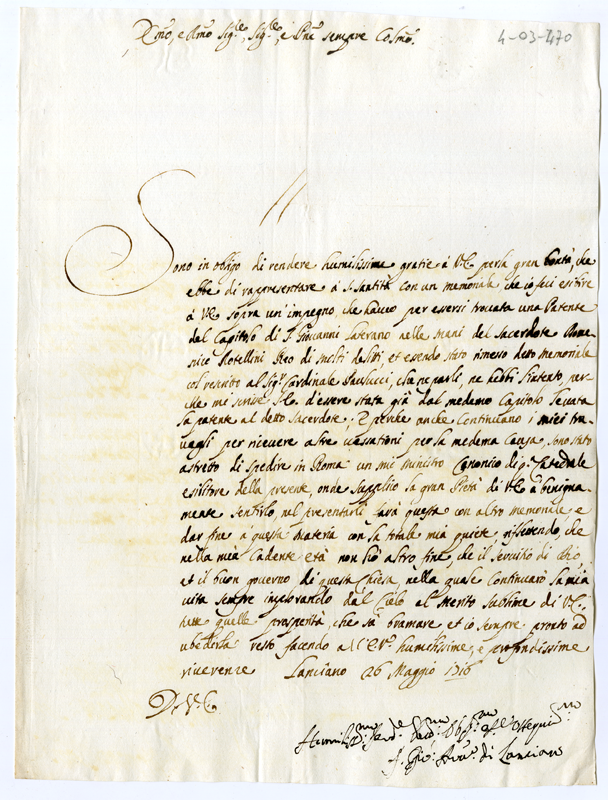 4-03-470
Em̃o, e Rm̃o Sig.re, Sig.re, e Prñe sempre Colm̃o.
Sono in obligo di rendere humilissime gratie à V.E. per la gran bontà, che
ebbe di rappresentare à S. Santità con un memoriale, che io feci esibire
à V.E. sopra un'impegno, che haveo per essersi trovata una Patente
dal Capitolo di S. Giovanni Laterano nelle mani del Sacerdote Dome-
nico Rotellini Reo di molti delitti, et essendo stato rimesso detto memoriale
col rescritto al Sig.r Cardinale Paulucci, che ne parli, ne hebbi l'intento, per-
che mi scrive S.E. d'essere stata già dal medemo Capitolo levata
la patente al detto Sacerdote. E perche anche continuano i miei tra-
vagli per ricevere altre vessationi per la medema causa, sono stato
astretto di spedire in Roma un mio ministro Canonico di q.a Catedrale
esibitore della presente, onde supplico la gran Pietà di V.E. à benigna-
mente sentirlo, nel presentarle sarà questa con altro memoriale, e
dar fine a questa materia con la totale mia quiete, riflettendo, che
nella mia cadente età non hò altro fine, che il servitio di Dio,
et il buon governo di questa Chiesa, nella quale continuarò la mia
vita sempre implorando dal Cielo al merito sublime di V.E.
tutte quelle prosperità, che sà bramare et io sempre pronto ad
ubedirla resto facendo a V.E. humilissime, e profondissime
riverenze Lanciano 26 Maggio 1716
D. V. E.
Humiliss.mo Ser.e Obblig.mo
f. Gio: Arciv.o di Lanciano